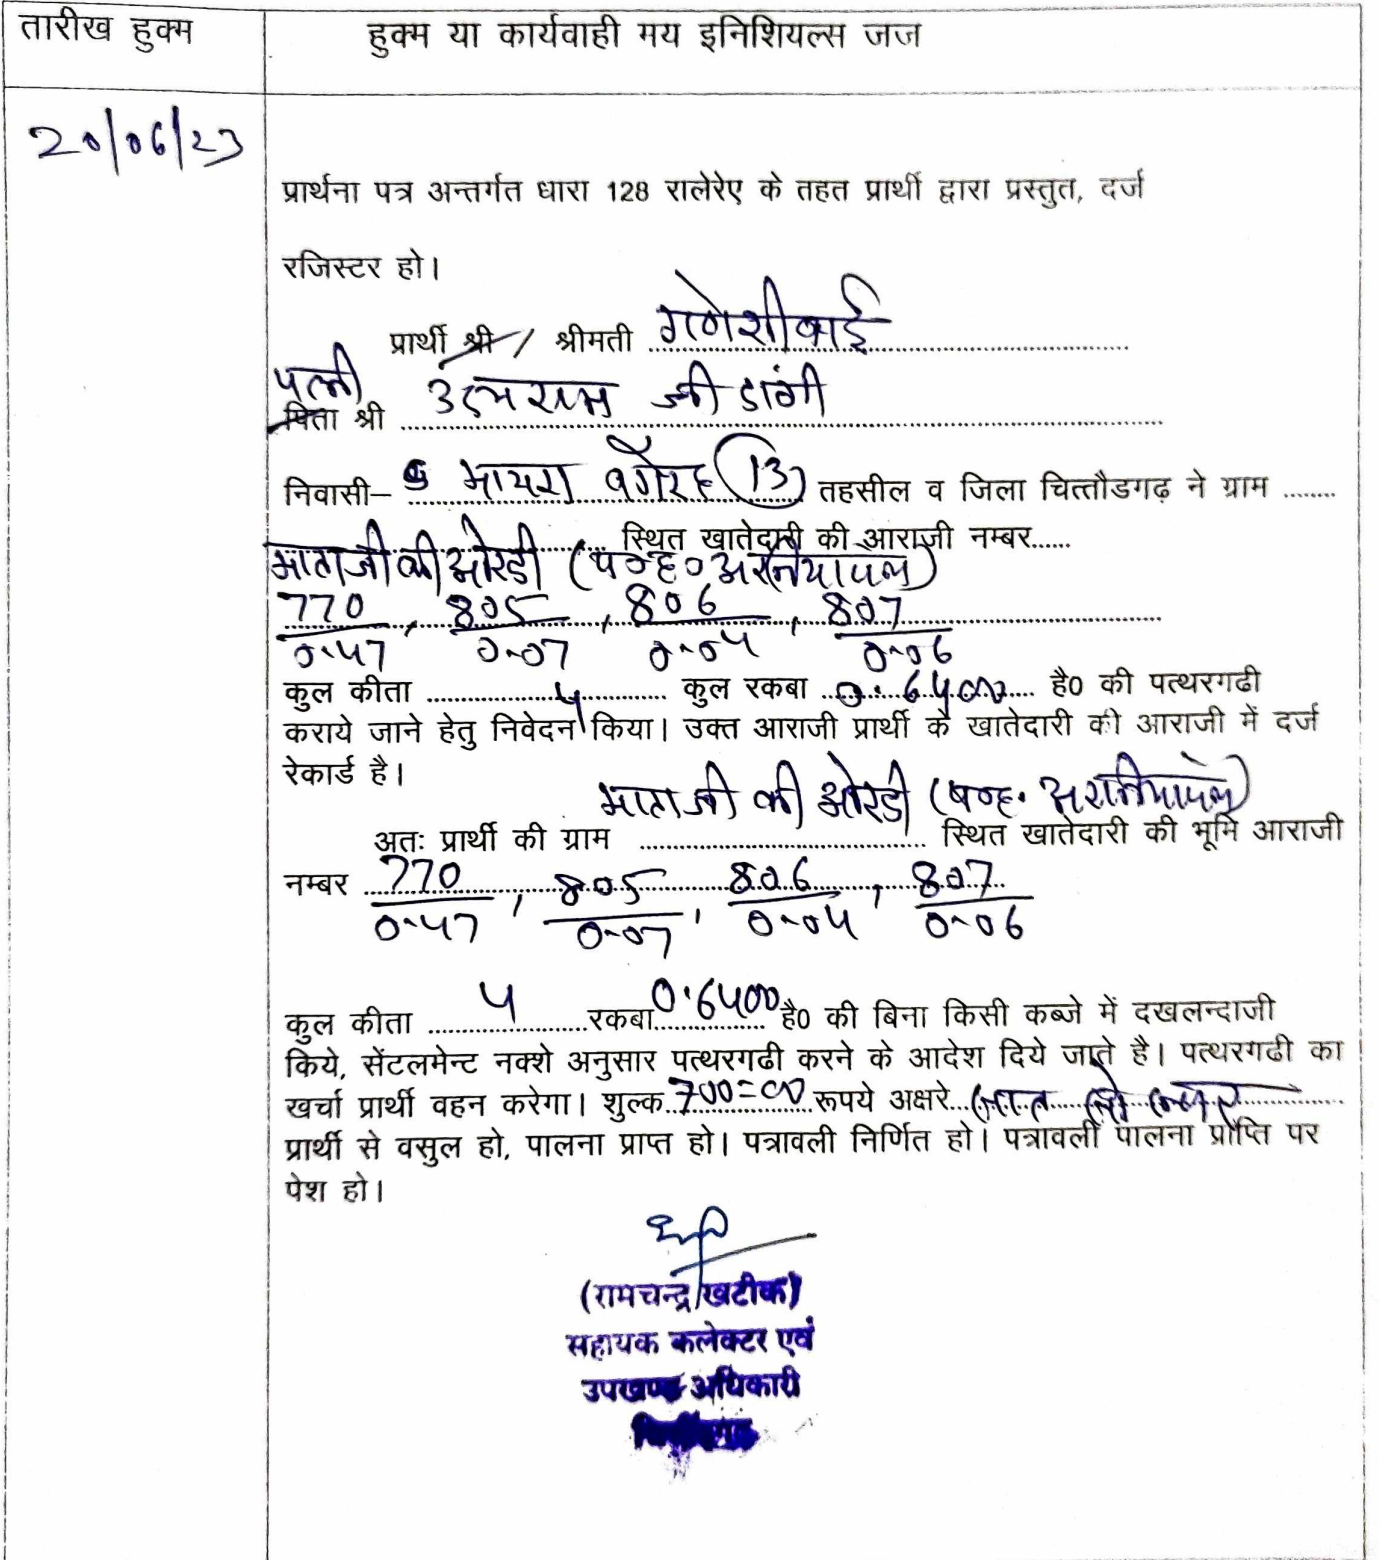 तारीख हुक्म
हुक्म या कार्यवाही मय इनिशियल्स जज
20/06/23
प्रार्थना पत्र अन्तर्गत धारा 128 रालेरेए के तहत प्रार्थी द्वारा प्रस्तुत, दर्ज
रजिस्टर हो।
प्रार्थी श्री / श्रीमती गणेशीबाई
पत्नी
पिता श्री उदयराम जी डांगी
निवासी– मायरा वगैरह (13) तहसील व जिला चित्तौडगढ़ ने ग्राम ........
माताजी की ओरडी (प०ह० अरनियापंथ) स्थित खातेदारी की आराजी नम्बर......
770/0.47, 805/0.07, 806/0.04, 807/0.06
कुल कीता 4 कुल रकबा 0.6400 है0 की पत्थरगढी
कराये जाने हेतु निवेदन किया। उक्त आराजी प्रार्थी के खातेदारी की आराजी में दर्ज
रेकार्ड है।
अतः प्रार्थी की ग्राम माताजी की ओरडी (प०ह० अरनियापंथ) स्थित खातेदारी की भूमि आराजी
नम्बर 770/0.47, 805/0.07, 806/0.04, 807/0.06
कुल कीता 4 रकबा 0.6400 है0 की बिना किसी कब्जे में दखलन्दाजी
किये, सेंटलमेन्ट नक्शे अनुसार पत्थरगढी करने के आदेश दिये जाते है। पत्थरगढी का
खर्चा प्रार्थी वहन करेगा। शुल्क 700=00 रूपये अक्षरे (सात सौ रूपये
प्रार्थी से वसुल हो, पालना प्राप्त हो। पत्रावली निर्णित हो। पत्रावली पालना प्राप्ति पर
पेश हो।
(रामचन्द्र खटीक)
सहायक कलेक्टर एवं
उपखण्ड अधिकारी